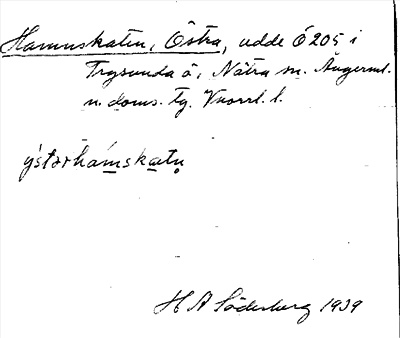 Hamnskatan, Östra, udde Ö 205 i
Trysunda ö, Nätra sn. Ångerml.
n. doms. tg. Vnorrl. l.
ýstərhámskatn̥
H A Söderberg 1939